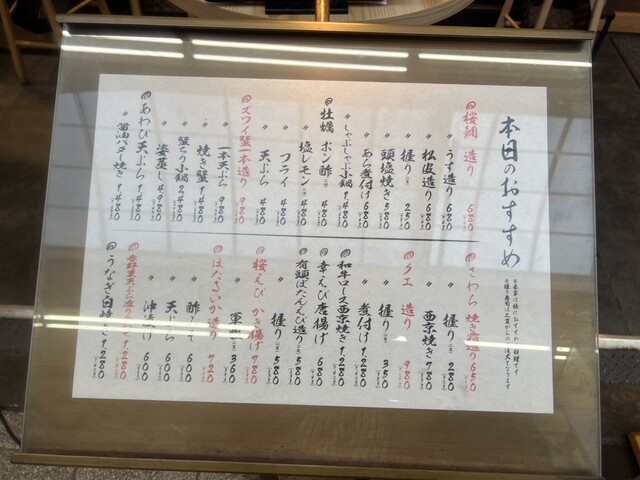 本日のおすすめ
桜鯛 造り 680
〃 うす造り 680
〃 松皮造り 680
〃 握り 250
〃 頭塩焼き 580
〃 あら煮付け 680
〃 しゃぶしゃぶ小鍋 1,480
牡蠣 ポン酢 480
〃 塩レモン 480
〃 フライ 480
〃 天ぷら 480
ズワイ蟹一本造り 980
〃 一本天ぷら 980
〃 焼き蟹 1,480
〃 蟹ちり小鍋 2,480
〃 姿蒸し 4,980
あわび天ぷら 1,480
〃 醤油バター焼き 1,480
さわら 焼き霜造り 650
〃 握り 280
〃 西京焼き 780
クエ 造り 980
〃 握り 350
〃 煮付け 1,280
和牛ロース西京焼き 1,280
幸えび唐揚げ 680
有頭ぼたんえび造り 580
〃 握り 580
桜えび かき揚げ 780
〃 軍 360
ほたるいか造り 720
〃 酢 600
〃 天ぷら 600
〃 沖 600
春野菜天ぷら盛り 1,280
うなぎ白焼き 1,280